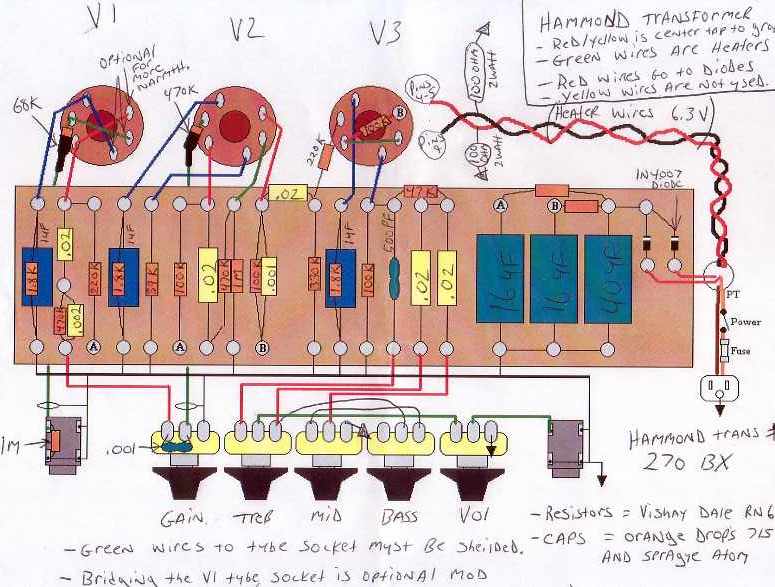 V1
V2
V3
OPTIONAL
FOR
MORE
WARMTH.
68K
470K
220K
100K
B
Pins
4-5
Pin
1000HM
2WATT
100
OHM
2WATT
HAMMOND TRANSFORMER
- Red/Yellow is center tap to gro
- Green wires are Heaters
- Red wires Go to Diodes
- Yellow wires are Not used.
(Heater wires 6.3V)
1N4007
DIODE
.02
47K
A
B
1uF
.02
1uF
1uF
500PF
1.8K
220K
1.8K
100K
.02
470K
1M
100K
.001
1.8K
100K
.02
.02
16uF
16uF
40uF
470K
.002
A
A
B
PT
Power
Fuse
1M
.001
GAIN.
TREB
MID
BASS
VOl
HAMMOND TRANS #
270 BX
- Green wires to tube socket must Be sheilded.
- Bridging the V1 tube socket is optional MOD
- Resistors = Vishay Dale RN6
- CAPS = orange Drops 715
AND Sprague Atom